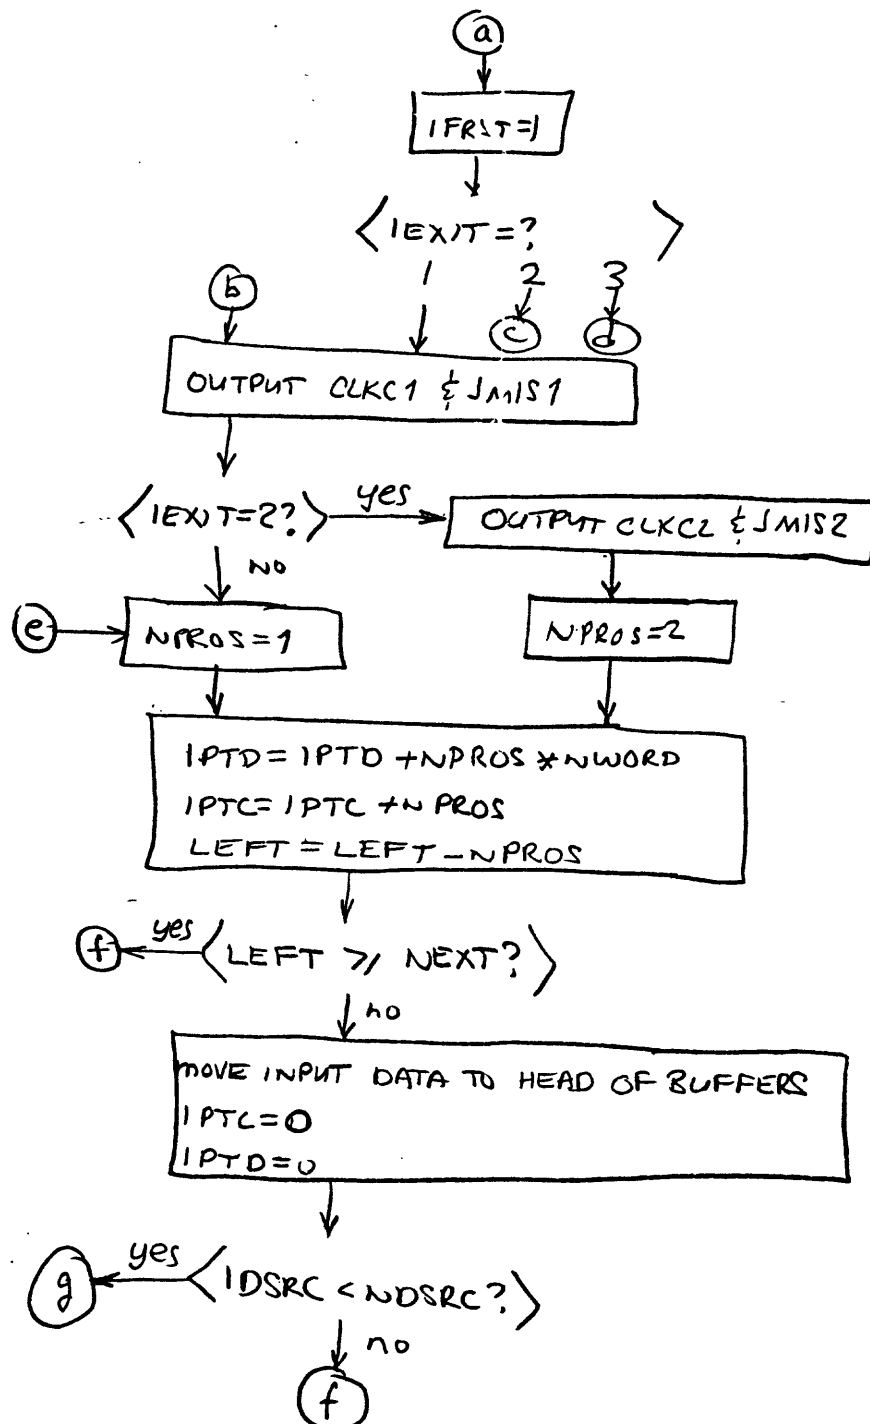 a
IFRST=1
<IEXIT=? >
1 2 3
b
c d
OUTPUT CLKC1 & JMIS1
<IEXIT=2?> yes
OUTPUT CLKC2 & JMIS2
NO
e
NPROS=1
NPROS=2
IPTD=IPTD+NPROS*NWORD
IPTC=IPTC+NPROS
LEFT=LEFT-NPROS
f yes <LEFT ≥ NEXT?>
no
MOVE INPUT DATA TO HEAD OF BUFFERS
IPTC=0
IPTD=0
g yes <IDSRC < NDSRC?>
no
f